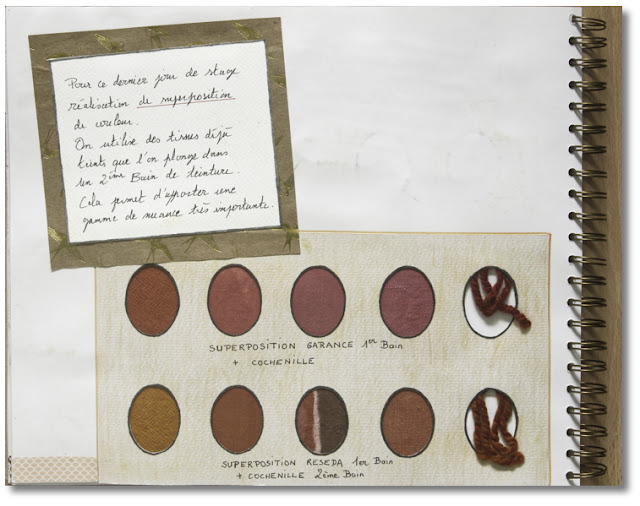 Pour ce dernier jour de stage
réalisation de superposition
de couleur.
On utilise des tissus déjà
teints que l'on plonge dans
un 2ème Bain de teinture.
Cela permet d'apporter une
gamme de nuance très importante.
SUPERPOSITION GARANCE 1er Bain
+ COCHENILLE
SUPERPOSITION RESEDA 1er Bain
+ COCHENILLE 2ème Bain